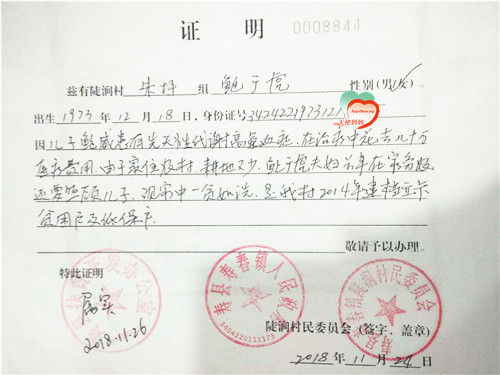 证 明 0008844
兹有陡涧村 朱圩 组 鲍于虎 性别(男/女)
出生 1973 年 12 月 18 日,身份证号 3424221973121
AngelMom.org
天使妈妈
因儿子鲍威患有先天性代谢高氨血症,在治疗中花去几十万
医疗费用。由于家住农村,耕地又少,鲍于虎夫妇长年在家务农,
还要照顾儿子,现家中一贫如洗,是我村2014年建档立卡
贫困户及低保户
敬请予以办理。
特此证明
属实
2018.11.26
开发办公室
寿县寿春镇人民政府
寿县寿春镇陡涧村民委员会
陡涧村民委员会(签字、盖章)
2018 年 11 月 24 日